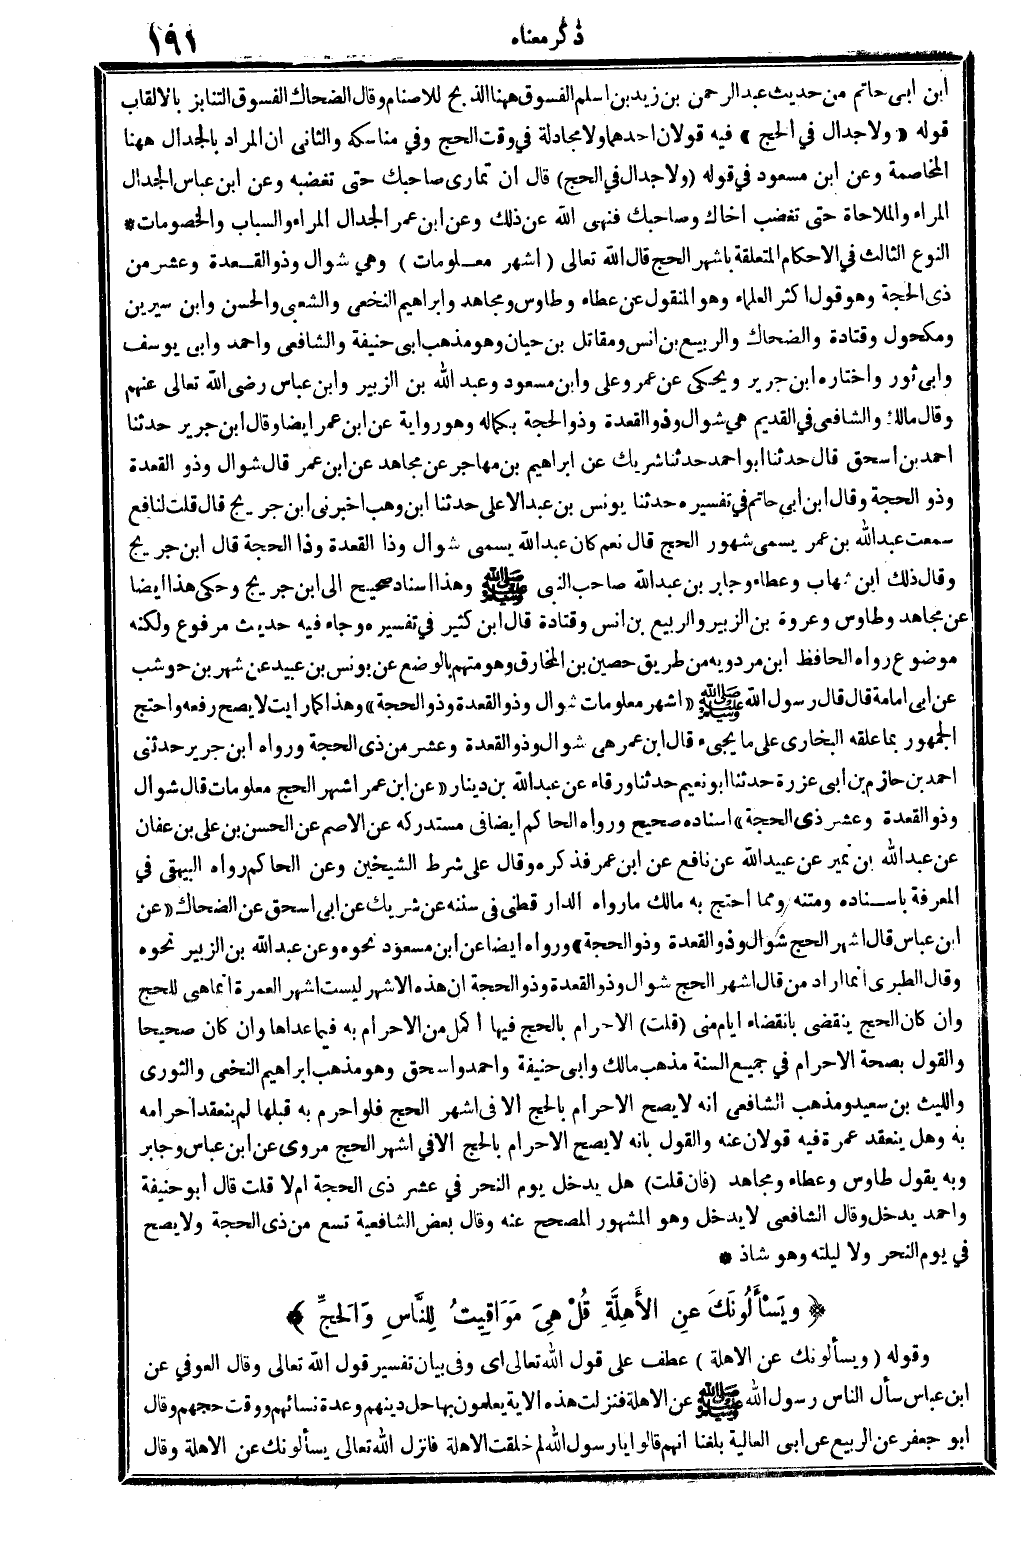 ذكر معناه ١٩١
ابن ابى حاتم من حديث عبد الرحمن بن زيد بن اسلم الفسوق ههنا الذبح للاصنام وقال الضحاك الفسوق التنابز بالالقاب
قوله « ولا جدال في الحج » فيه قولان احدهما ولا مجادلة في وقت الحج وفي مناسكه والثانى ان المراد بالجدال ههنا
المخاصمة وعن ابن مسعود في قوله (ولا جدال في الحج) قال ان تمارى صاحبك حتى تغضبه وعن ابن عباس الجدال
المراء والملاحاة حتى تغضب اخاك وصاحبك فنهى الله عن ذلك وعن ابن عمر الجدال المراء والسباب والخصومات *
النوع الثالث في الاحكام المتعلقة باشهر الحج قال الله تعالى ( اشهر معلومات ) وهي شوال وذو القعدة وعشر من
ذى الحجة وهو قول اكثر العلماء وهو المنقول عن عطاء وطاوس ومجاهد وابراهيم النخعى والشعبى والحسن وابن سيرين
ومكحول وقتادة والضحاك والربيع بن انس ومقاتل بن حيان وهو مذهب ابى حنيفة والشافعى واحمد وابى يوسف
وابى ثور واختاره ابن جرير ويحكى عن عمر وعلى وابن مسعود وعبد الله بن الزبير وابن عباس رضى الله تعالى عنهم
وقال مالك والشافعى في القديم هي شوال وذو القعدة وذو الحجة بكماله وهو رواية عن ابن عمر ايضا وقال ابن جرير حدثنا
احمد بن اسحق قال حدثنا ابو احمد حدثنا شريك عن ابراهيم بن مهاجر عن مجاهد عن ابن عمر قال شوال وذو القعدة
وذو الحجة وقال ابن ابى حاتم في تفسيره حدثنا يونس بن عبد الاعلى حدثنا ابن وهب اخبرنى ابن جريج قال قلت لنافع
سمعت عبد الله بن عمر يسمى شهور الحج قال نعم كان عبد الله يسمى شوال وذا القعدة وذا الحجة قال ابن جريج
وقال ذلك ابن شهاب وعطاء وجابر بن عبد الله صاحب النبى ﷺ وهذا اسناد صحيح الى ابن جريج وحكى هذا ايضا
عن مجاهد وطاوس وعروة بن الزبير والربيع بن انس وقتادة قال ابن كثير في تفسيره وجاء فيه حديث مرفوع ولكنه
موضوع رواه الحافظ ابن مردويه من طريق حصين بن المخارق وهو متهم بالوضع عن يونس بن عبيد عن شهر بن حوشب
عن ابى امامة قال قال رسول الله ﷺ « اشهر معلومات شوال وذو القعدة وذو الحجة » وهذا كما رايت لا يصح رفعه واحتج
الجمهور بما علقه البخارى على ما يجىء قال ابن عمر هى شوال وذو القعدة وعشر من ذى الحجة ورواه ابن جرير حدثنى
احمد بن حازم بن ابى عزرة حدثنا ابو نعيم حدثنا ورقاء عن عبد الله بن دينار « عن ابن عمر اشهر الحج معلومات قال شوال
وذو القعدة وعشر ذى الحجة » اسناده صحيح ورواه الحاكم ايضا فى مستدركه عن الاصم عن الحسن بن على بن عفان
عن عبد الله بن نمير عن عبيد الله عن نافع عن ابن عمر فذكره وقال على شرط الشيخين وعن الحاكم رواه البيهقى في
المعرفة باسناده ومتنه ومما احتج به مالك ما رواه الدار قطنى فى سننه عن شريك عن ابى اسحق عن الضحاك « عن
ابن عباس قال اشهر الحج شوال وذو القعدة وذو الحجة » ورواه ايضا عن ابن مسعود نحوه وعن عبد الله بن الزبير نحوه
وقال الطبرى انما اراد من قال اشهر الحج شوال وذو القعدة وذو الحجة ان هذه الاشهر ليست اشهر العمرة انما هى للحج
وان كان الحج ينقضى بانقضاء ايام منى (قلت) الاحرام بالحج فيها اكمل من الاحرام به فيما عداها وان كان صحيحا
والقول بصحة الاحرام في جميع السنة مذهب مالك وابى حنيفة واحمد واسحق وهو مذهب ابراهيم النخعى والثورى
والليث بن سعيد ومذهب الشافعى انه لا يصح الاحرام بالحج الا فى اشهر الحج فلو احرم به قبلها لم ينعقد احرامه
به وهل ينعقد عمرة فيه قولان عنه والقول بانه لا يصح الاحرام بالحج الا في اشهر الحج مروى عن ابن عباس وجابر
وبه يقول طاوس وعطاء ومجاهد (فان قلت) هل يدخل يوم النحر في عشر ذى الحجة ام لا قلت قال أبو حنيفة
واحمد يدخل وقال الشافعى لا يدخل وهو المشهور المصحح عنه وقال بعض الشافعية تسع من ذى الحجة ولا يصح
في يوم النحر ولا ليلته وهو شاذ *
﴿ ويَسْأَلُونَكَ عنِ الأَهِلَّةِ قُلْ هِيَ مَوَاقِيتُ لِلنَّاسِ وَالحَجِّ ﴾
وقوله ( ويسألونك عن الاهلة ) عطف على قول الله تعالى اى وفى بيان تفسير قول الله تعالى وقال العوفي عن
ابن عباس سأل الناس رسول الله ﷺ عن الاهلة فنزلت هذه الاية يعلمون بها حل دينهم وعدة نسائهم ووقت حجهم وقال
ابو جعفر عن الربيع عن ابى العالية بلغنا انهم قالوا يارسول الله لم خلقت الاهلة فانزل الله تعالى يسألونك عن الاهلة وقال